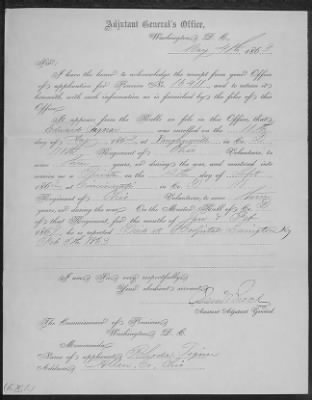 Adjutant General's Office,
Washington, D. C.
May 4th, 1863
Sir:
I have the honor to acknowledge the receipt from your Office
of application for Pension No. and to return it
herewith with such information as is furnished by the files of this
Office.
It appears from the Rolls on file in this Office, that
Edward was enrolled on the
day of 1862 at in Co.
Regiment of Ohio Volunteers, to serve
years, or during the war, and mustered into
service as a Private on the day of Sept
1862 at Cincinnati in Co.
Regiment of Ohio Volunteers, to serve three
years, or during the war. On the Muster Roll of Co.
of that Regiment, for the months of Jan & Feb
1863, he is reported Died at Hospital Lexington Ky
Feb 1863
I am Sir, very respectfully,
Your obedient servant,
Assistant Adjutant General.
The Commissioner of Pensions
Washington, D. C.
Memoranda:
Name of applicant, Rhoda
Address, Allen Co, Ohio